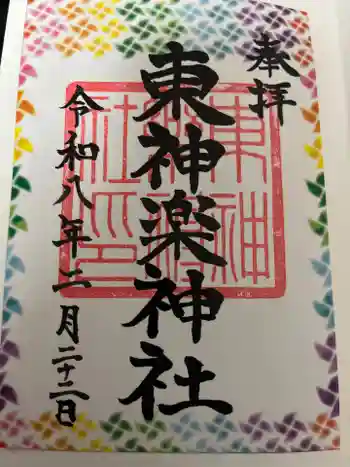 奉拝
東神楽神社
令和八年二月二十二日
東神楽神社印